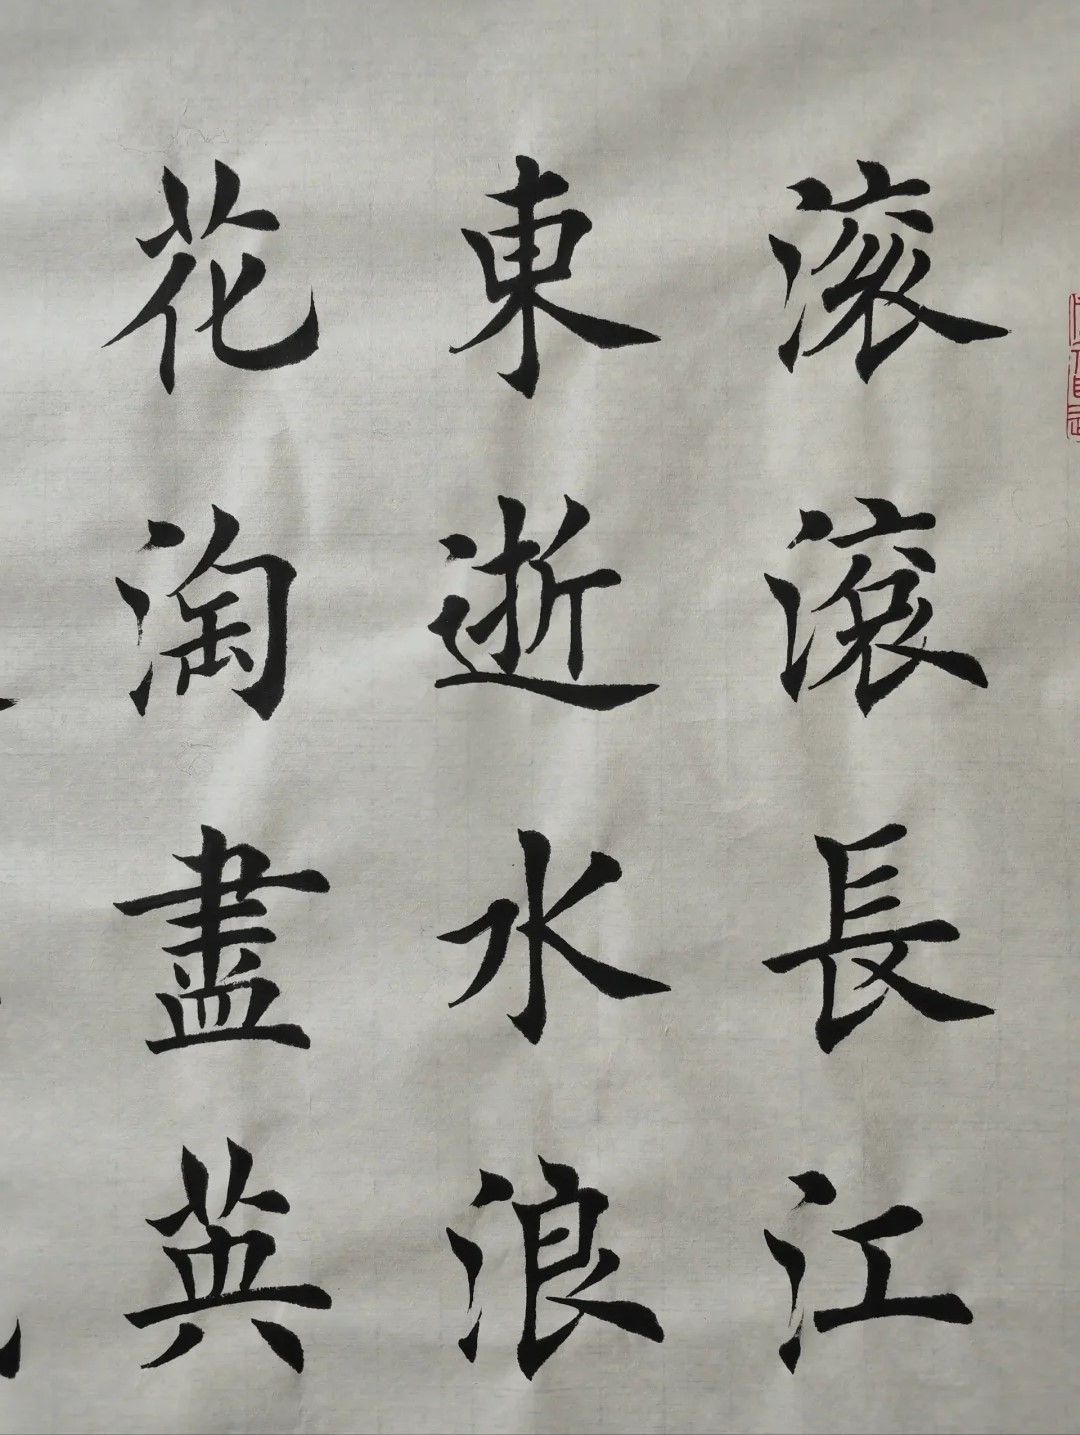 滚滾長江
東逝水浪
花淘盡英